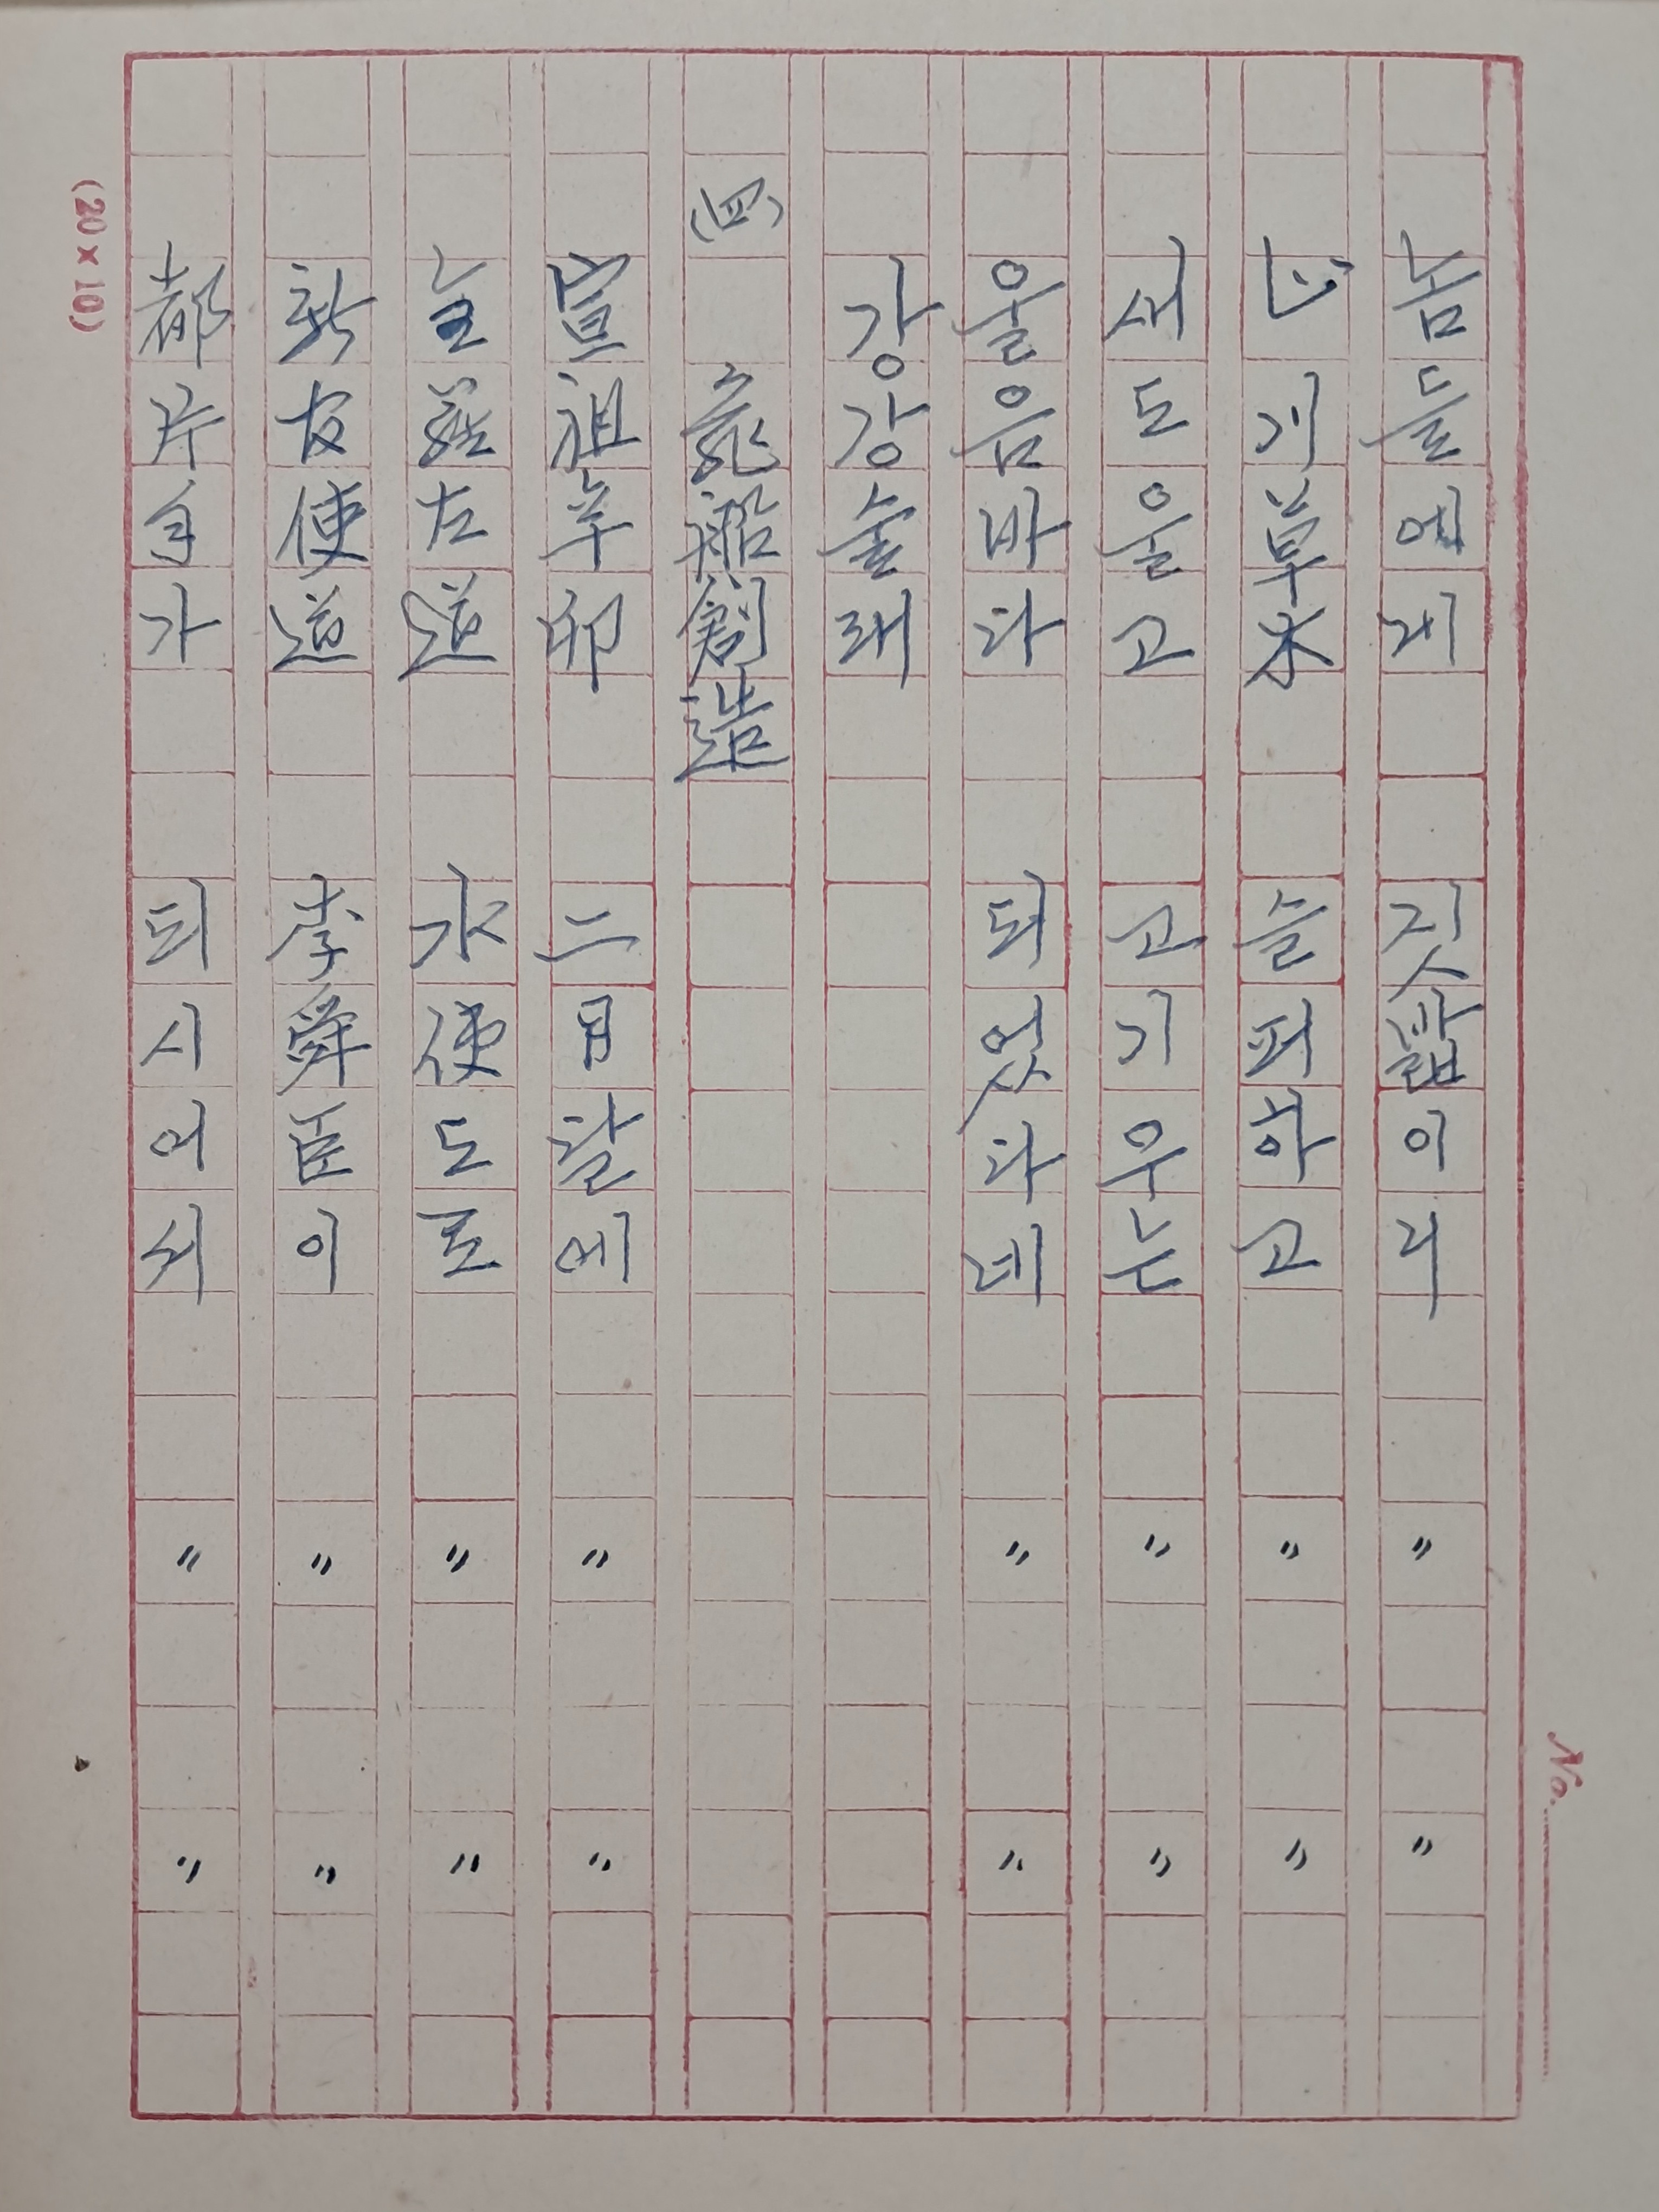 No.
놈들에게 짓밟이리 〃 〃
山川草木 슬피하고 〃 〃
새도울고 고기우는 〃 〃
울음바다 되엇다네 〃 〃
강강술래
(四) 龜船創造
宣祖辛卯 二月달에 〃 〃
全羅左道 水使도로 〃 〃
新友使道 李舜臣이 〃 〃
都片手가 되시어서 〃 〃
(20×10)